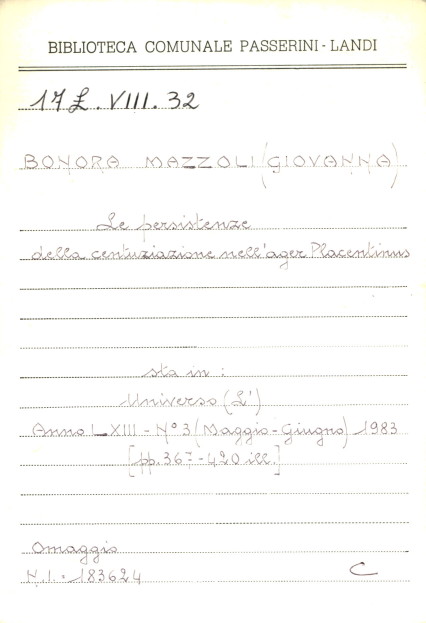 BIBLIOTECA COMUNALE PASSERINI-LANDI
17 L. VIII. 32
BONORA MAZZOLI (GIOVANNA)
Le persistenze
della centuriazione nell'ager Placentinus
sta in :
Universo (L')
Anno LXIII - N° 3 (Maggio-Giugno) 1983
[pp. 367-420 ill.]
Omaggio
N.I. 183624
C